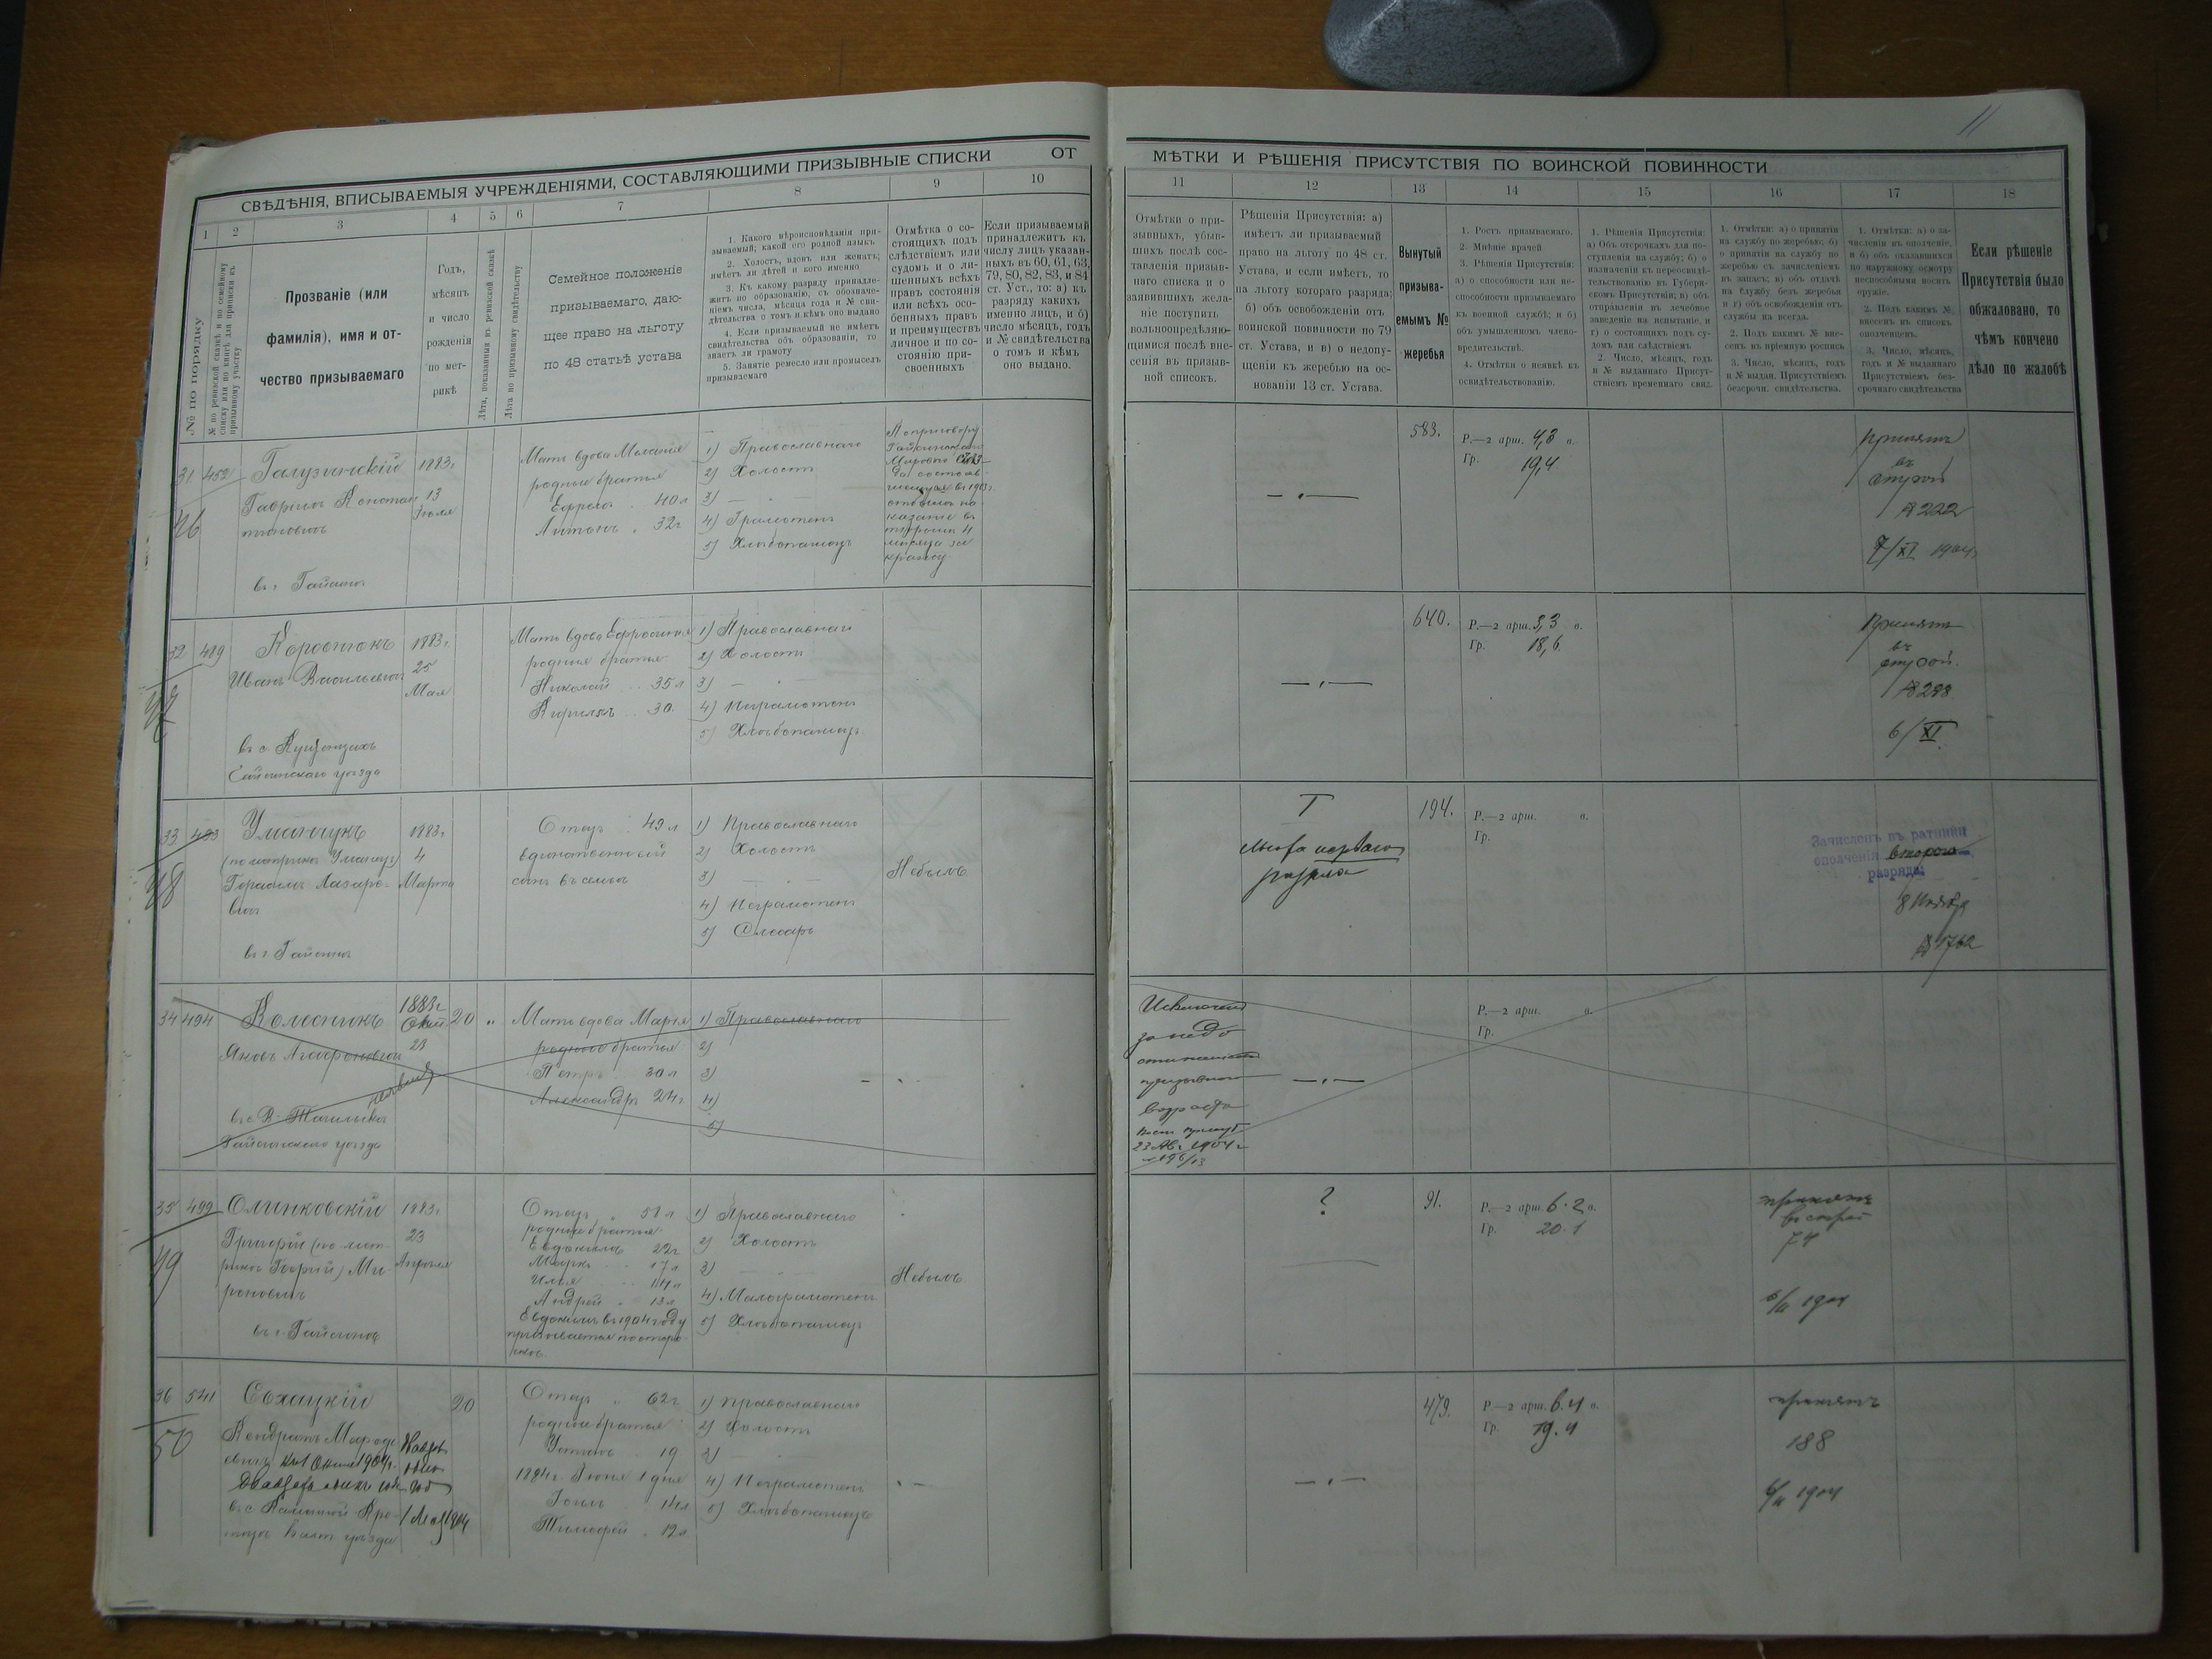 11
СВѢДѢНІЯ, ВПИСЫВАЕМЫЯ УЧРЕЖДЕНІЯМИ, СОСТАВЛЯЮЩИМИ ПРИЗЫВНЫЕ СПИСКИ ОТ
МѢТКИ И РѢШЕНІЯ ПРИСУТСТВІЯ ПО ВОИНСКОЙ ПОВИННОСТИ
1 2 3 4 5 6 7 8 9 10
11 12 13 14 15 16 17 18
№ по порядку
№ по ревизской сказкѣ и по семейному
списку или по книгѣ для приписки къ
призывному участку
Прозваніе (или
фамилія), имя и от-
чество призываемаго
Годъ,
мѣсяцъ
и число
рожденія
по мет-
рикѣ
Лѣта, показанныя въ ревизской сказкѣ
Лѣта по призывному свидѣтельству
Семейное положеніе
призываемаго, даю-
щее право на льготу
по 48 статьѣ устава
1. Какого вѣроисповѣданія при-
зываемый; какой его родной языкъ
2. Холостъ, вдовъ или женатъ;
имѣетъ ли дѣтей и кого именно
3. Къ какому разряду принадле-
житъ по образованію, съ обозначе-
ніемъ числа, мѣсяца года и № сви-
дѣтельства о томъ и кѣмъ оно выдано
4. Если призываемый не имѣетъ
свидѣтельства объ образованіи, то
знаетъ ли грамоту
5. Занятіе ремесло или промыселъ
призываемаго
Отмѣтка о со-
стоящихъ подъ
слѣдствіемъ или
судомъ и о ли-
шенныхъ всѣхъ
правъ состоянія
или всѣхъ осо-
бенныхъ правъ
и преимуществъ
личное и по со-
стоянію при-
своенныхъ
Если призываемый
принадлежитъ къ
числу лицъ указан-
ныхъ въ 60, 61, 63,
79, 80, 82, 83, и 84
ст. Уст., то: а) къ
разряду какихъ
именно лицъ, и б)
число мѣсяцъ, годъ
и № свидѣтельства
о томъ и кѣмъ
оно выдано.
Отмѣтки о при-
зывныхъ, убыв-
шихъ послѣ сос-
тавленія призыв-
наго списка и о
заявившихъ жела-
ніе поступить
вольноопредѣляю-
щимися послѣ вне-
сенія въ призыв-
ной списокъ.
Рѣшенія Присутствія: а)
имѣетъ ли призываемый
право на льготу по 48 ст.
Устава, и если имѣетъ, то
на льготу котораго разряда;
б) объ освобожденіи отъ
воинской повинности по 79
ст. Устава, и в) о недопу-
щеніи къ жеребью на ос-
нованіи 13 ст. Устава.
Вынутый
призыва-
емымъ №
жеребья
1. Ростъ призываемаго.
2. Мнѣніе врачей
3. Рѣшенія Присутствія:
а) о способности или не-
способности призываемаго
къ военной службѣ; и б)
объ умышленномъ члено-
вредительствѣ.
4. Отмѣтки о неявкѣ къ
освидѣтельствованію.
1. Рѣшенія Присутствія:
а) Объ отсрочкахъ для по-
ступленія на службу; б) о
назначеніи къ переосвидѣ-
тельствованію въ Губерн-
скомъ Присутствіи; в) объ
отправленіи въ лечебное
заведеніе на испытаніе, и
г) о состоящихъ подъ су-
домъ или слѣдствіемъ
2. Число, мѣсяцъ, годъ
и № выданнаго Присут-
ствіемъ временнаго свид.
1. Отмѣтки: а) о принятіи
на службу по жеребью; б)
о принятіи на службу по
жеребью съ зачисленіемъ
въ запасъ; в) объ отдачѣ
на службу безъ жеребья
и г) объ освобожденіи отъ
службы на всегда.
2. Подъ какимъ № вне-
сенъ въ пріемную роспись
3. Число, мѣсяцъ, годъ
и № выдан. Присутствіемъ
безсрочн. свидѣтельства.
1. Отмѣтки: а) о за-
численіи въ ополченіе,
и б) объ оказавшихся
по наружному осмотру
неспособными носить
оружіе.
2. Подъ какимъ №
внесенъ въ списокъ
ополченцевъ.
3. Число, мѣсяцъ,
годъ и № выданнаго
Присутствіемъ без-
срочнаго свидѣтельства
Если рѣшеніе
Присутствія было
обжаловано, то
чѣмъ кончено
дѣло по жалобѣ
31 452
46
Галузинскій
Гавріилъ Констан-
тиновичъ
въ г. Гайсинѣ
1883г.
13
Іюля
Мать вдова Меланія
родные братья
Ефремъ 40 л
Антонъ 32 г
1) Православнаго
2) Холостъ
3) —
4) Грамотенъ
5) Хлѣбопашецъ
По приговору
казаніе въ
тюрьмѣ 4
мѣсяца за
кражу
583.
Р.—2 арш. 4,3 в.
Гр. 19,4
Принятъ
въ
строй
№ 222
7/XI 1904
32 489
47
Коростюкъ
Иванъ Васильевичъ
въ с. Кущинцахъ
Гайсинскаго уѣзда
1883г.
25
Мая
Мать вдова Ефросинія
родные братья
Николай 35 л
Кириллъ 30
1) Православнаго
2) Холостъ
3) —
4) Неграмотенъ
5) Хлѣбопашецъ
640.
Р.—2 арш. 3,3 в.
Гр. 18,6
Принятъ
въ
строй
6/XI
33 493
48
Уманчукъ
(по метрикѣ Уманецъ)
Герасимъ Лазаро-
вичъ
въ г. Гайсинѣ
1883г.
4
Марта
Отецъ 49 л
единственный
сынъ въ семьѣ
1) Православнаго
2) Холостъ
3) —
4) Неграмотенъ
5) Слесарь
Небылъ
I
Льгота перваго
разряда
194.
Р.—2 арш. в.
Гр.
Зачисленъ въ ратники
ополченія второго
разряда:
8 Ноября
№ 1762
34 494
Колесникъ
Яковъ Агафоновичъ
Гайсинскаго уѣзда
1883г.
23
20 "
Мать вдова Марія
родные братья
Петръ 30 л
Александръ 24 г.
1) Православнаго
2)
3)
4)
5)
Исключенъ
за недо
стиженіемъ
призывного
возраста
23 Авг. 1904 г.
Р.—2 арш. в.
Гр.
35 499
49
Олинковскій
Григорій (по мет-
рикѣ Георгій) Ми-
роновичъ
въ г. Гайсинѣ
1883г.
23
Апрѣля
Отецъ 51 л
родные братья
Евдокимъ 22 г
Маркъ 17 л
Илья 14 л
Андрей 13 л
Евдокимъ въ 1904 году
призывается по отсро-
чкѣ.
1) Православнаго
2) Холостъ
3) —
4) Малограмотенъ
5) Хлѣбопашецъ
Небылъ
?
91.
Р.—2 арш. 6.2 в.
Гр. 20.1
принятъ
въ строй
74
1904
36 541
50
Кондратъ
въ с.
20
Отецъ 62 г
родные братья
Устинъ 19
1884 г. Іюня 1 дня
14 л
Тимофей 12 л
1) Православнаго
2) Холостъ
3)
4) Неграмотенъ
5) Хлѣбопашецъ
479.
Р.—2 арш. 6.4 в.
Гр. 19.4
принятъ
188
1904